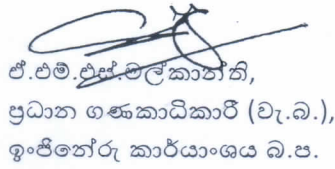 ඒ.එම්.එස්.මල්කාන්ති,
ප්‍රධාන ගණකාධිකාරී (වැ.බ.),
ඉංජිනේරු කාර්යාංශය බ.ප.